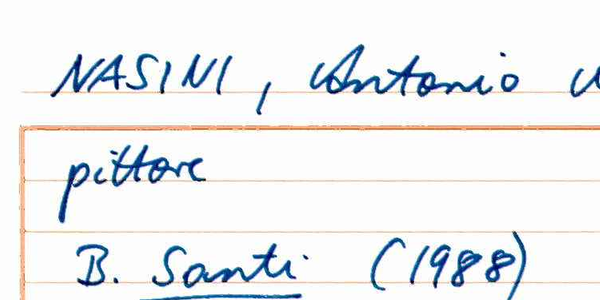 NASINI, Antonio
pittore
B. Santi (1988)